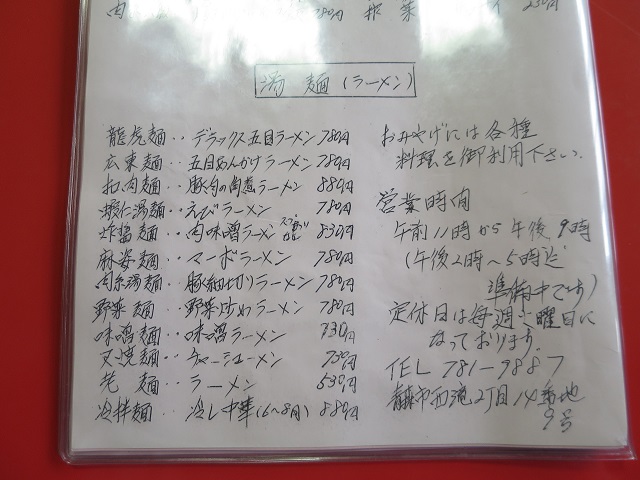 肉 780円 排 菜 230円
湯麺(ラーメン)
龍虎麺‥デラックス五目ラーメン 780円
広東麺‥五目あんかけラーメン 780円
扣肉麺‥豚肉の角煮ラーメン 880円
蝦仁湯麺‥えびラーメン 780円
炸醤麺‥肉味噌ラーメン 830円
麻婆麺‥マーボラーメン 780円
肉糸湯麺‥豚細切りラーメン 780円
野菜麺‥野菜炒めラーメン 780円
味噌麺‥味噌ラーメン 730円
叉焼麺‥チャーシューメン 730円
老麺‥ラーメン 530円
冷拌麺‥冷し中華(6〜8月) 880円
おみやげには各種
料理を御利用下さい。
営業時間
午前11時から午後9時
(午後2時〜5時迄
準備中です)
定休日は毎週火曜日に
なっております。
TEL 781-9887
青森市西滝2丁目14番地
9号